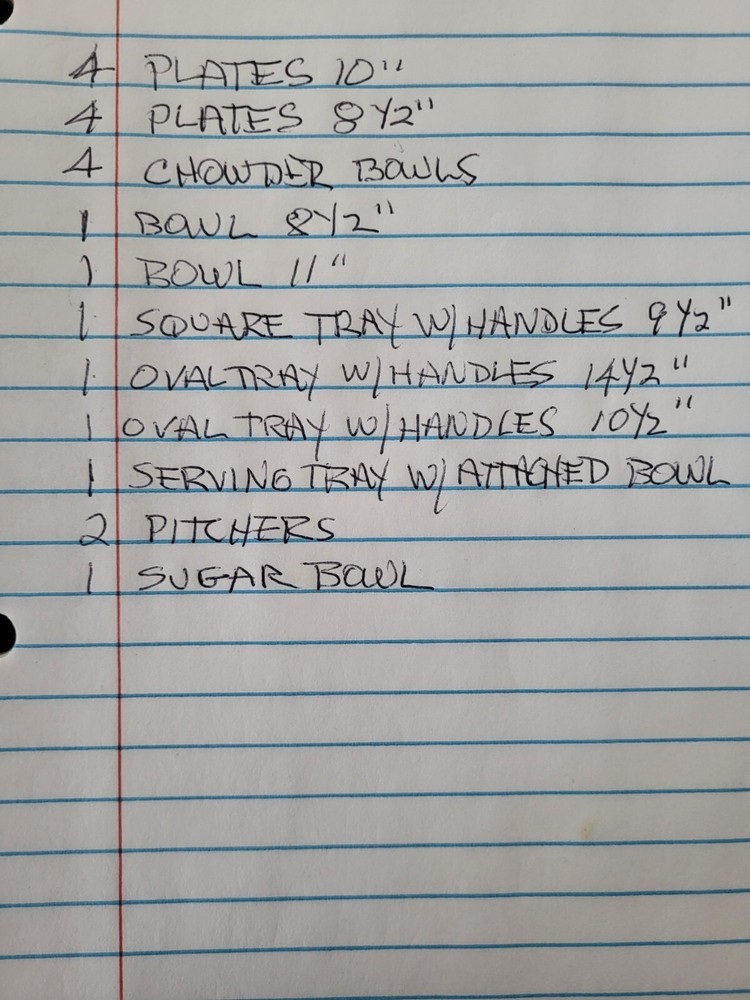 4 PLATES 10"
4 PLATES 8 1/2"
4 CHOWDER BOWLS
1 BOWL 8 1/2"
1 BOWL 11"
1 SQUARE TRAY W/HANDLES 9 1/2"
1 OVAL TRAY W/HANDLES 14 1/2"
1 OVAL TRAY W/HANDLES 10 1/2"
1 SERVING TRAY W/ATTACHED BOWL
2 PITCHERS
1 SUGAR BOWL